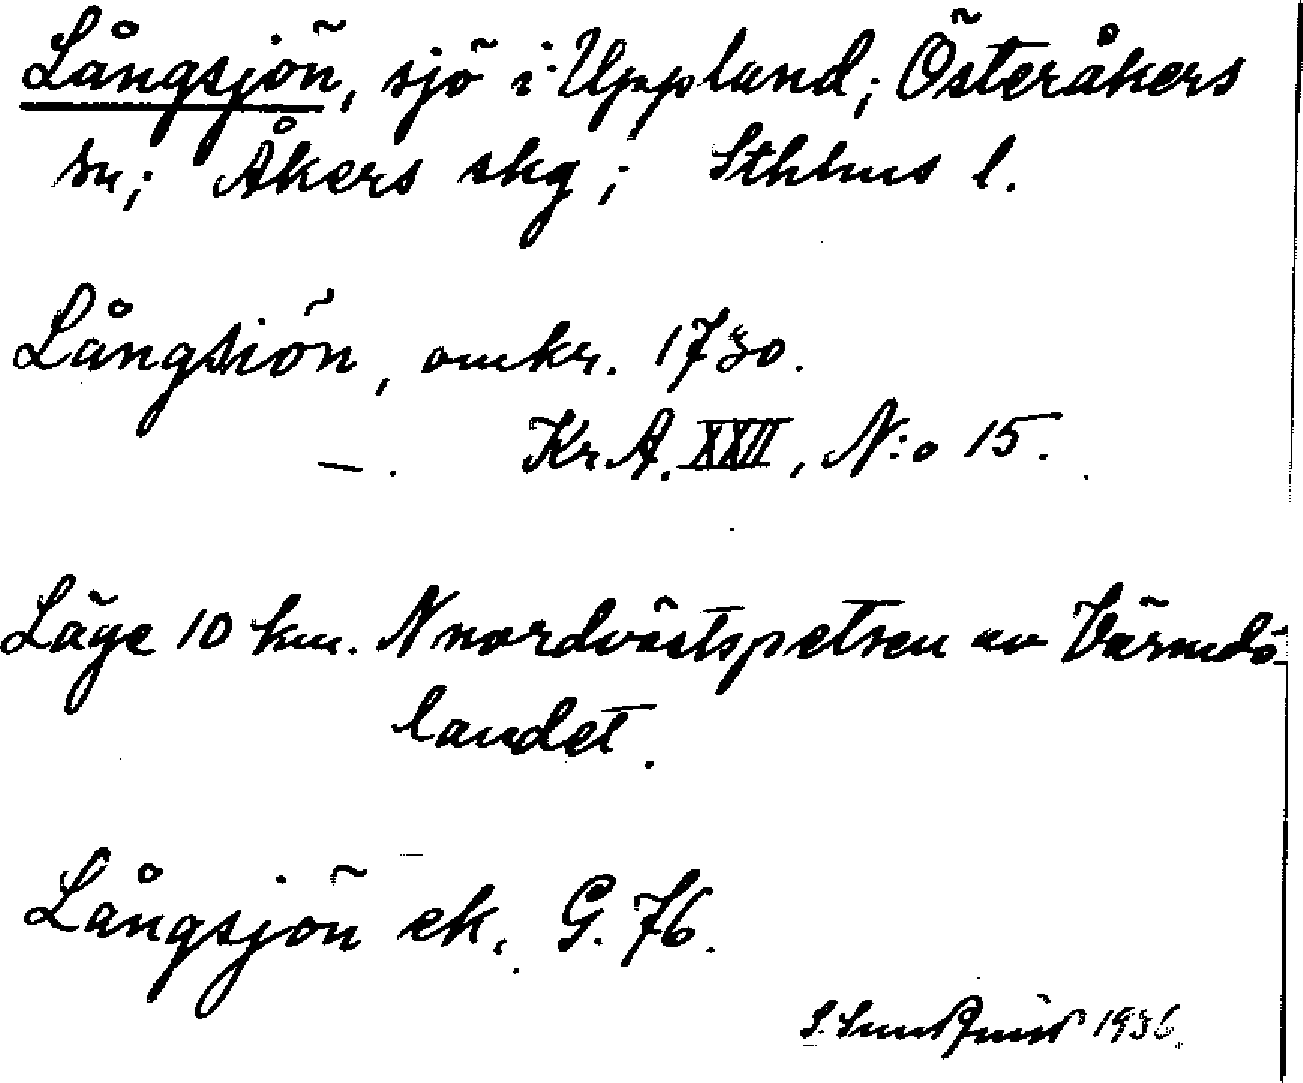 Långsjön, sjö i Uppland; Österåkers
sn; Åkers skg; Sthlms l.
Långsiön, omkr. 1730.
—. Kr A. XXII, N:o 15.
Läge 10 km. N nordvästspetsen av Värmdö
landet.
Långsjön ek. G. 76.
S. Sundqvist 1936.